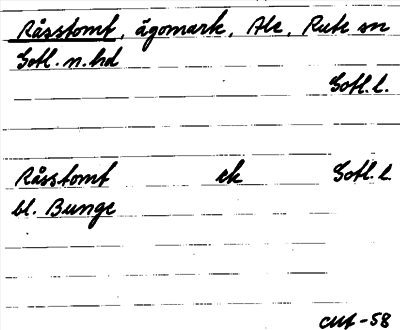 Råsstomt, ägomark, Ale, Rute sn
Gotl. n. hd
Gotl. l.
Råsstomt ek Gotl. l.
bl. Bunge
CMA-58